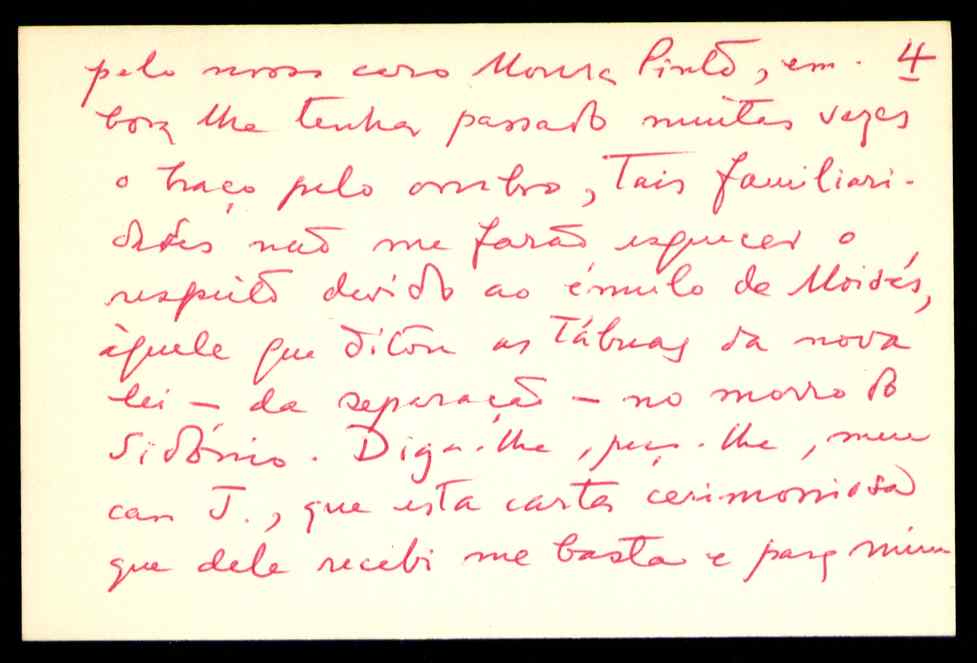 pelo nosso caro Moura Pinto, em- 4
bora lhe tenha passado muitas vezes
o braço pelo ombro, Tais familiari-
dades não me farão esquecer o
respeito devido ao émulo de Moisés,
àquele que ditou as Tábuas da nova
lei - da separação - no morro do
Sidónio. Diga-lhe, peço-lhe, meu
caro J., que esta carta cerimoniosa
que dele recebi me basta e para mim